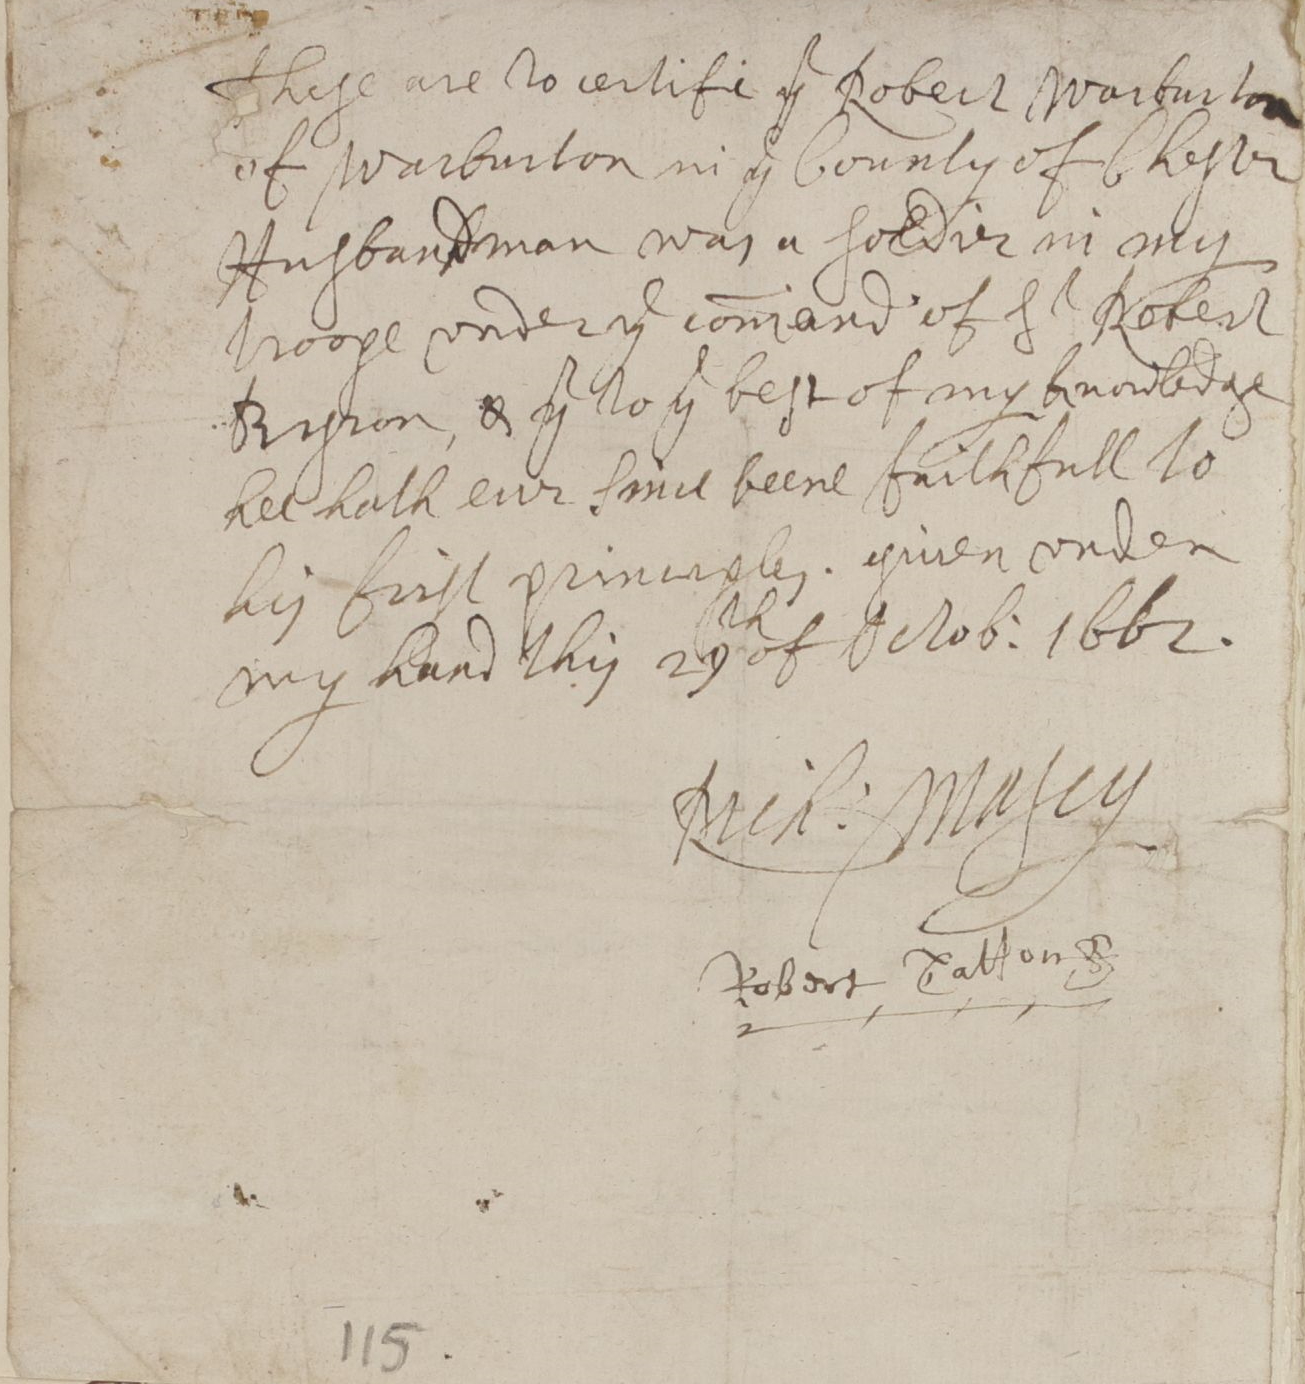 These are to certifie yt Robert Warburton
of Warburton in ye County of Chester
Husbandman was a soldier in my
troope vnder ye comand of Sr Robert
Byron, & yt to ye best of my knowledge
hee hath euer since beene faithfull to
his first principles. giuen vnder
my hand this 29th of Octob: 1662.
Rich: Massey
Robert Tatton
115.